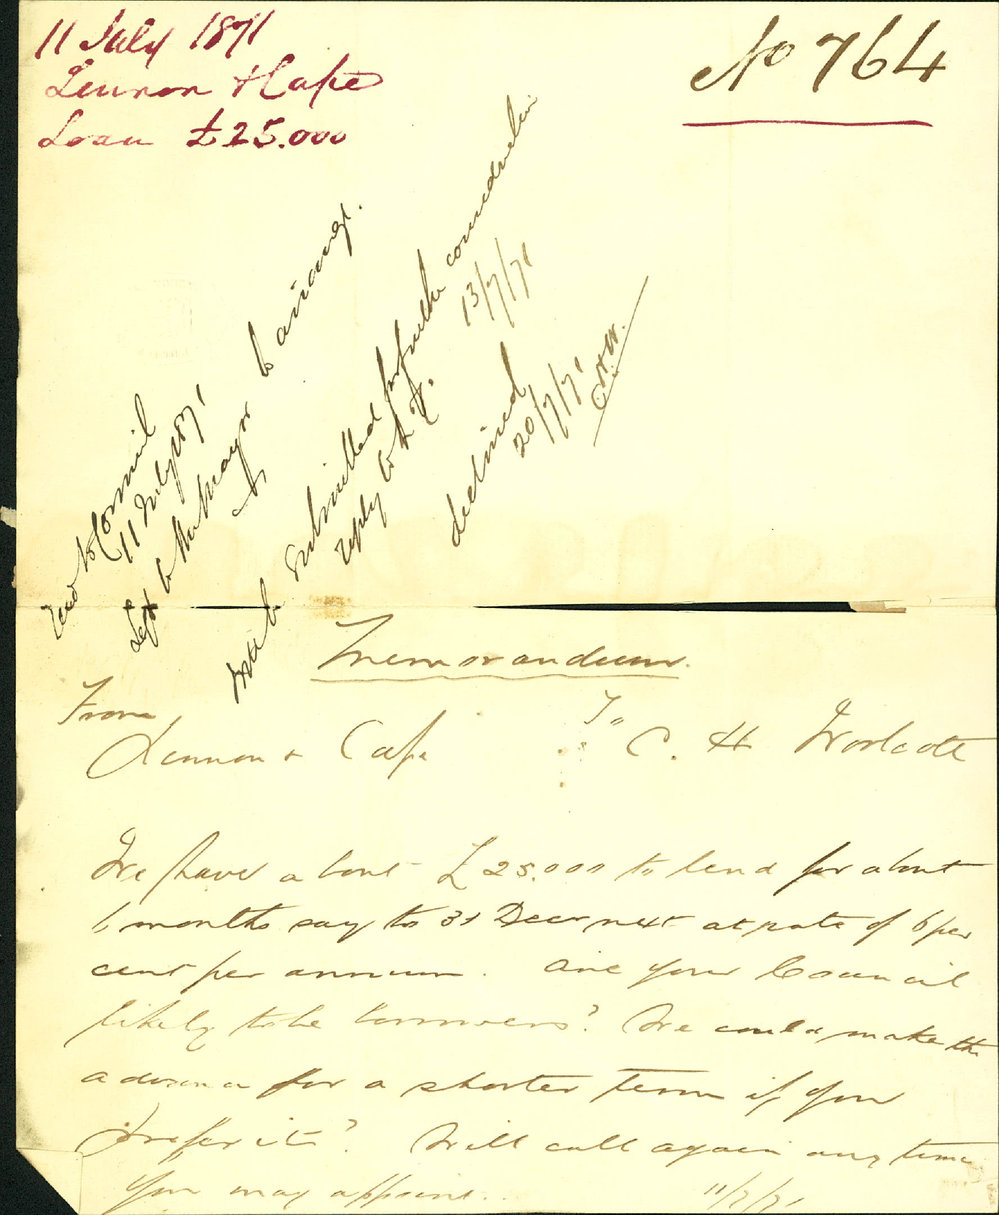 11 July 1871
Lennon & Cape
Loan £25.000
No 764
Read to Council
11 July 1871
Left to the Mayor to arrange.
Submitted for further consideration
reply to L & C. 13/7/71
declined
20/7/71
C.H.W.
Memorandum.
From
Lennon & Cape
To C. H Woolcott
We have about £25.000 to lend for about
6 months say to 31 Decr next at rate of 6 per
cent per annum. Are your Council
likely to be borrowers? We could make the
advance for a shorter term if you
prefer it? Will call again any time
you may appoint.
11/7/71